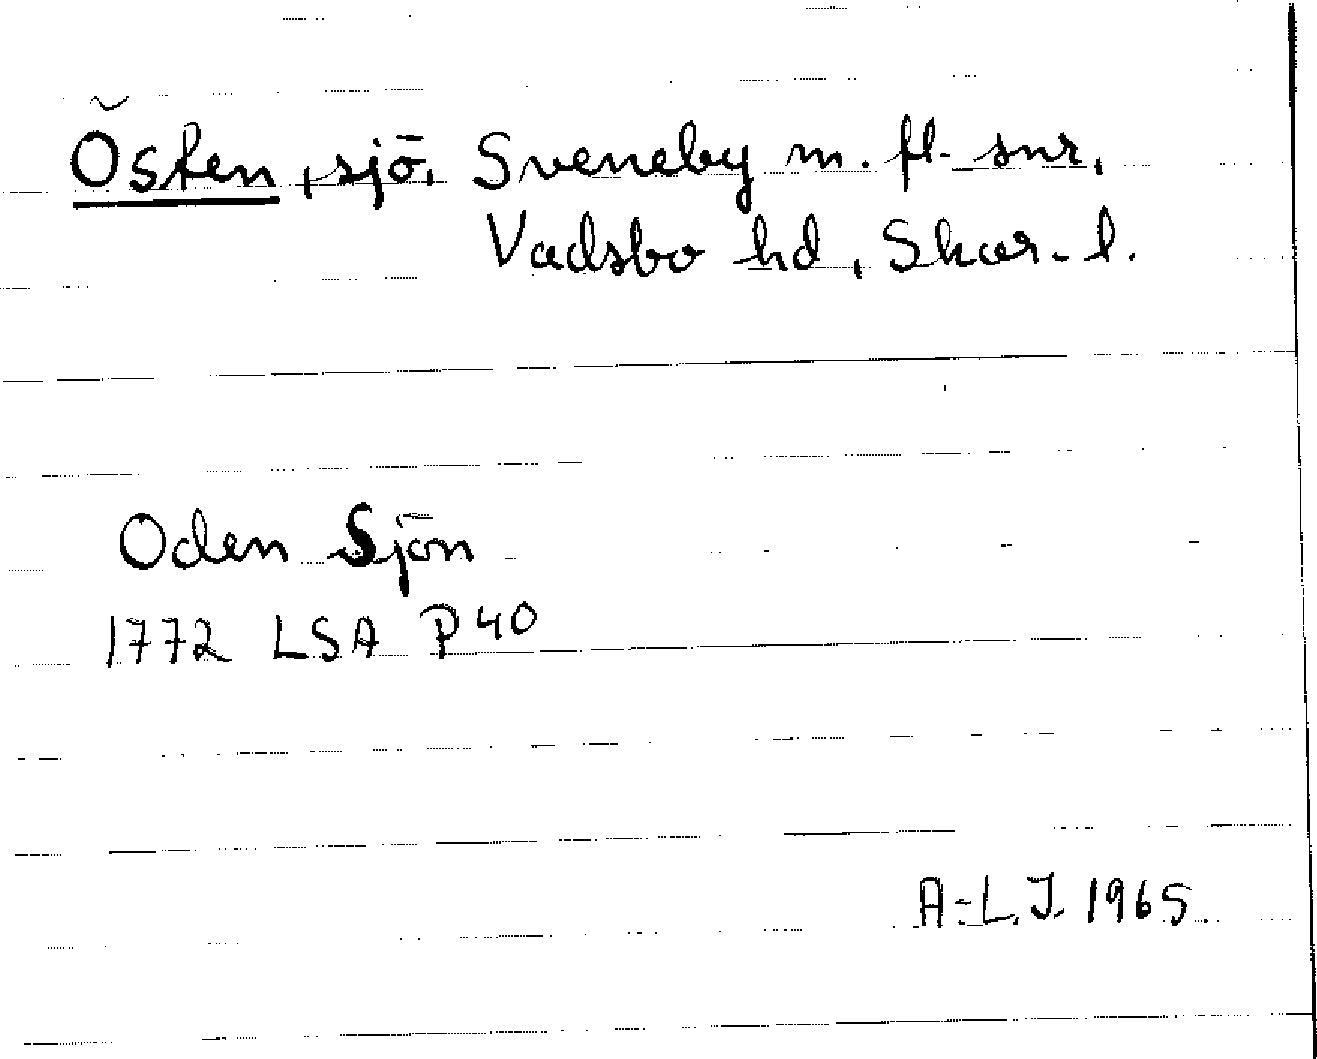 Östen, sjö, Sveneby m. fl. snr,
Vadsbo hd, Skar. l.
Oden Sjön
1772 LSA P 40
A-L. J. 1965